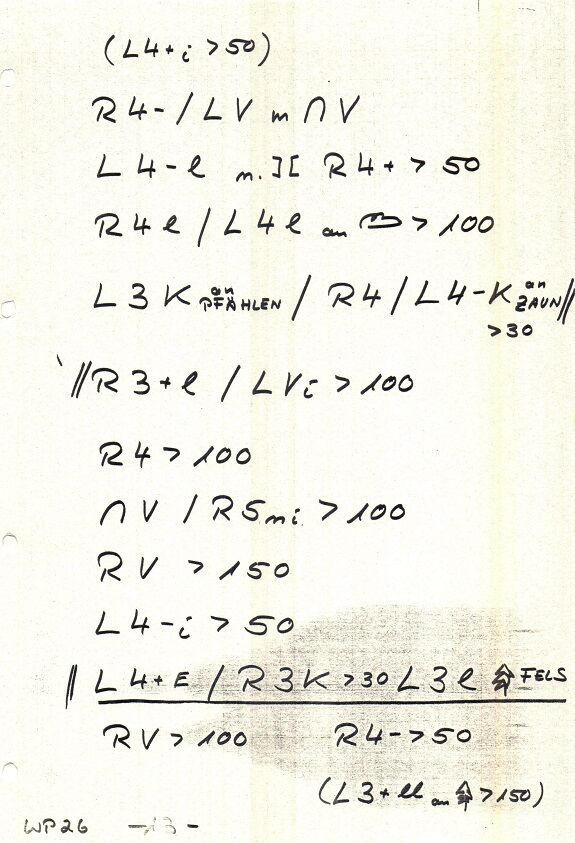 (L4+i >50)
R4-/LV m ∩ V
L 4-l m. ][ R4+ > 50
R4l / L4l an > 100
L3K an PFÄHLEN / R4/L4-K an ZAUN //
>30
// R3+l / LVi > 100
R4 > 100
∩ V / R5mi > 100
RV > 150
L4-i > 50
|| L4+E / R3K >30 L3l FELS
RV > 100 R4->50
(L3+ll an >150)
WP26 -13-